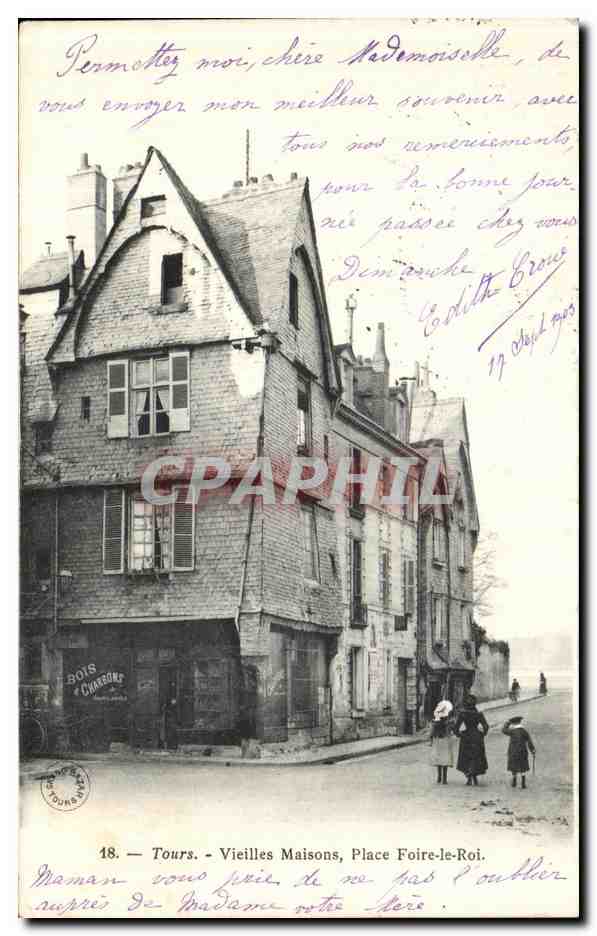 Permettez moi, chére Mademoiselle, de
vous envoyer mon meilleur souvenir, avec
tous nos remerciements,
pour la bonne jour-
née passée chez vous
Dimanche
Edith Crow
17 Sept 1903
CPARAMA.COM
BOIS
& CHARBONS
GRAND BAZAR
TOURS
18. — Tours. - Vieilles Maisons, Place Foire-le-Roi.
Maman vous prie de ne pas l'oublier
auprés de Madame votre Mere.